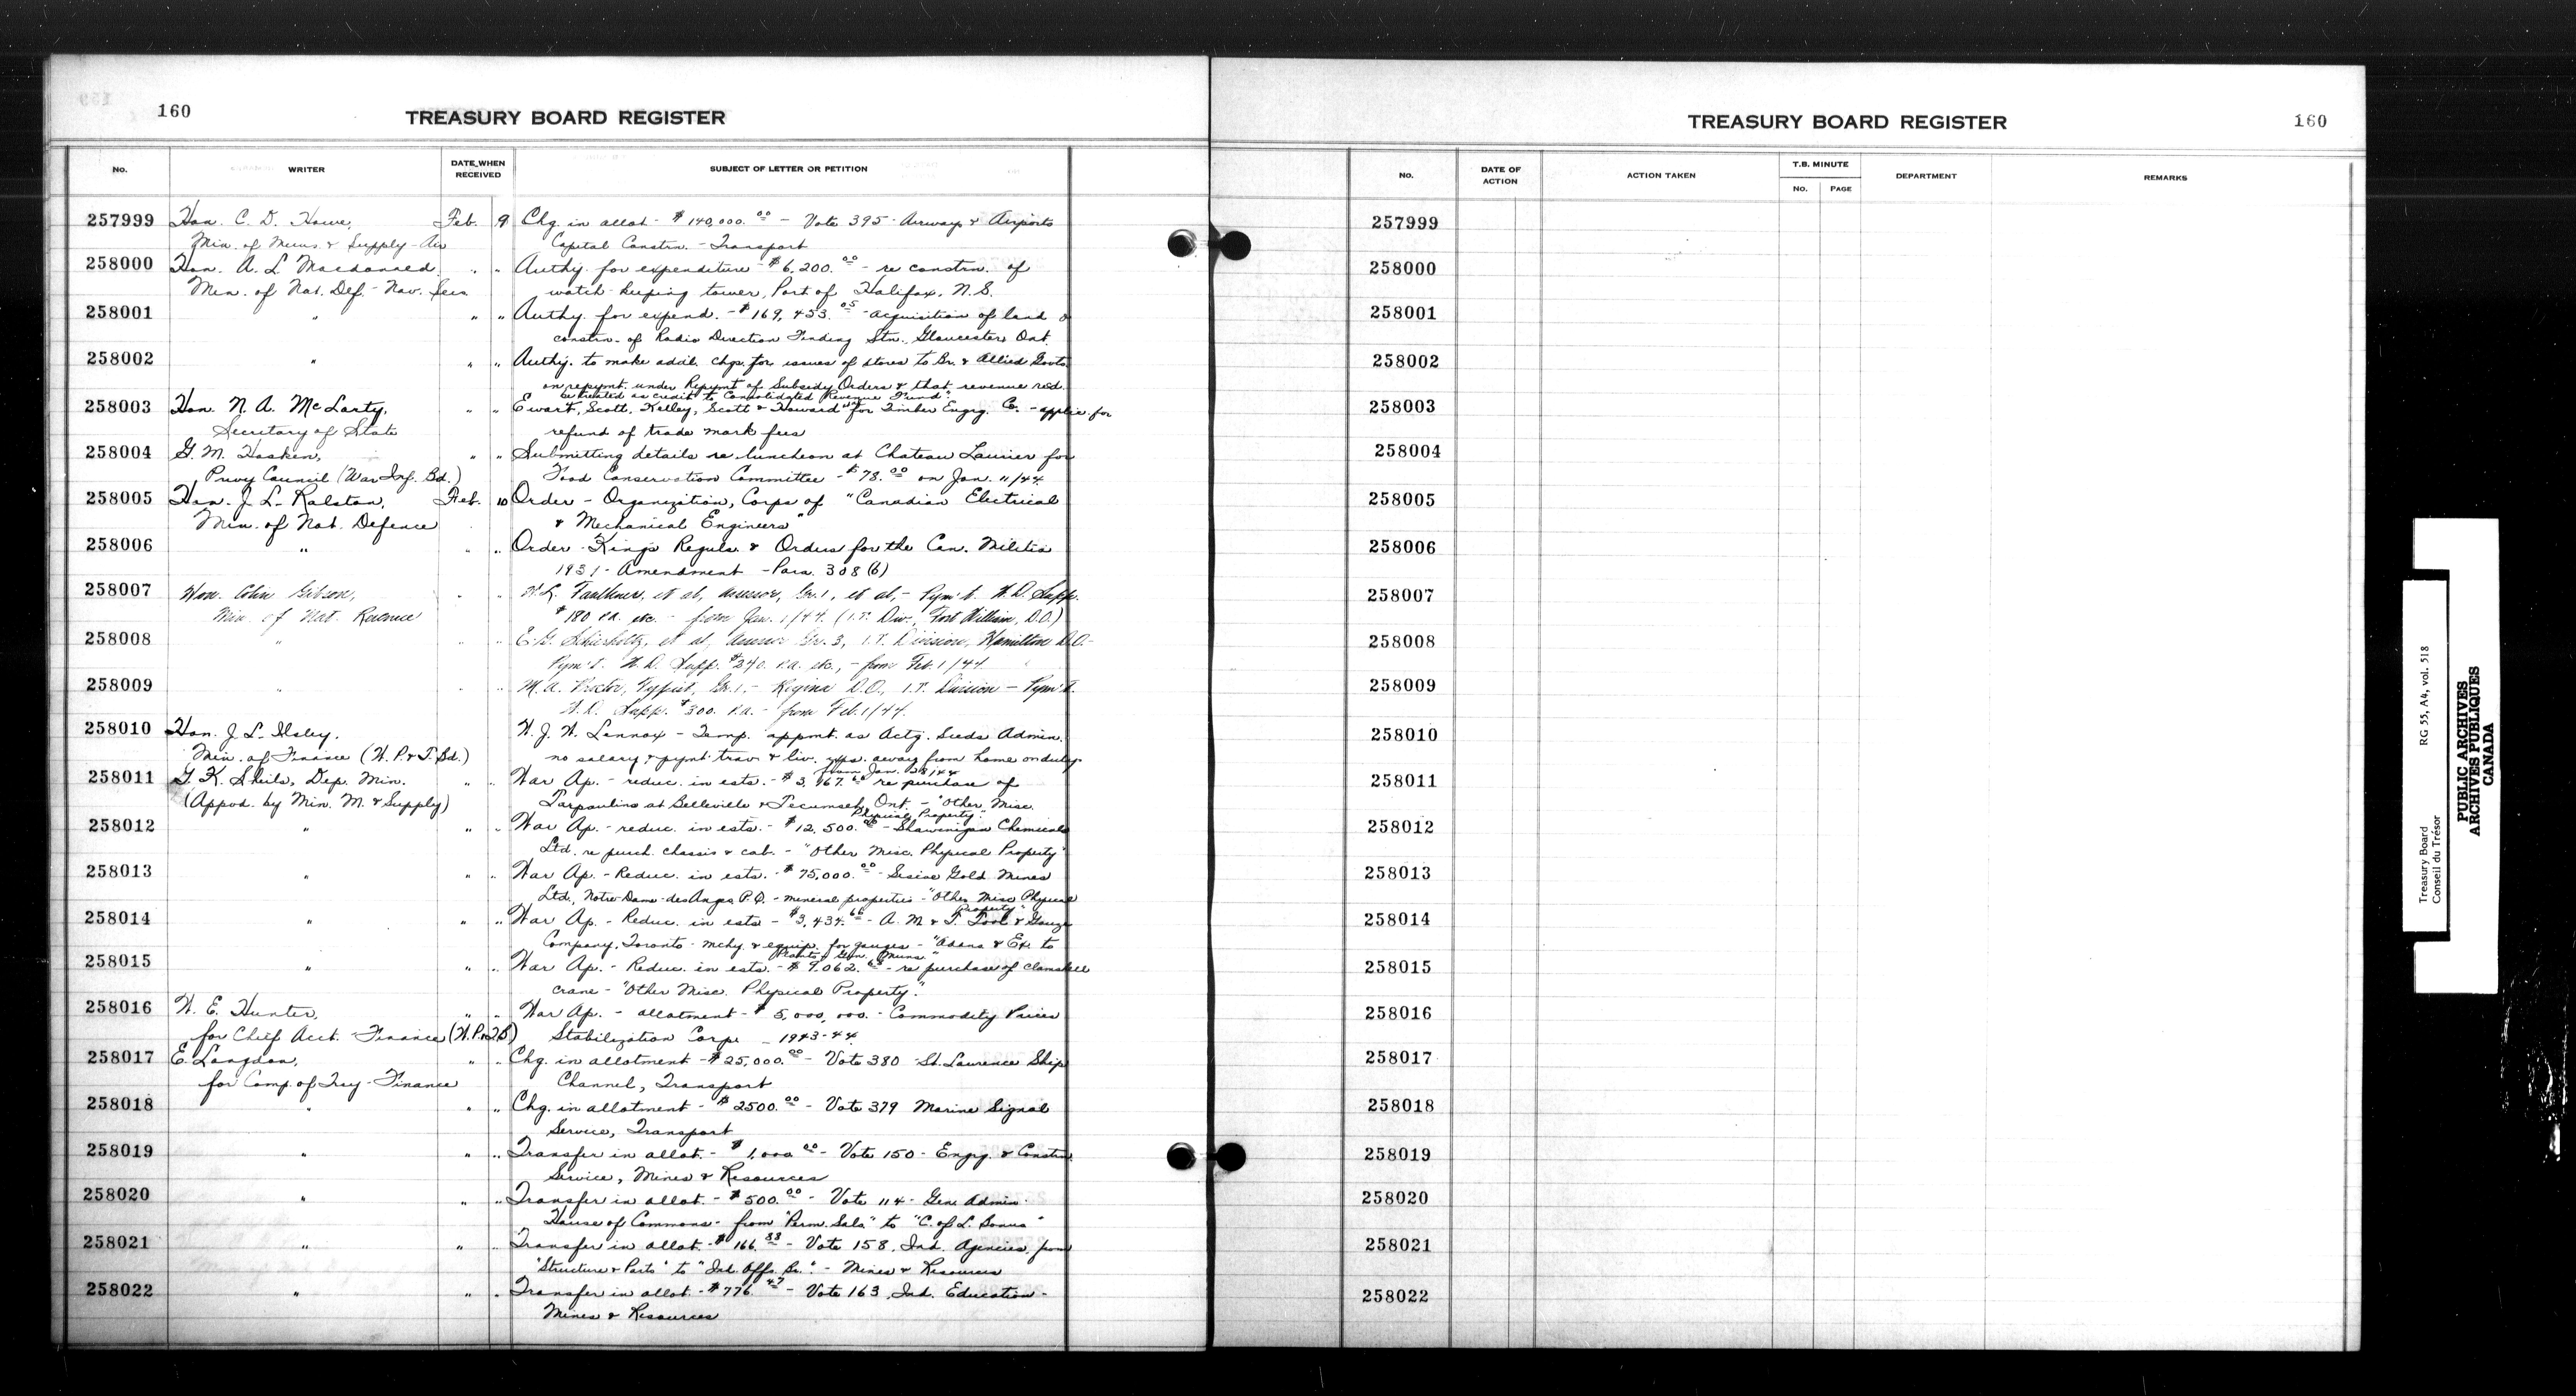 160
TREASURY BOARD REGISTER
No. WRITER DATE WHEN RECEIVED SUBJECT OF LETTER OR PETITION
257999 Hon. C. D. Howe, Feb. 9 Chg. in allot - $140,000.00 - Vote 395 - Airways & Airports
Min. of Muns. & Supply - Air Capital Constrn. - Transport
258000 Hon. A. L. Macdonald " " Authy. for expenditure - $6,200.00 - re constrn. of
Min. of Nat. Def. - Nav. Serv. watch-keeping tower, Port of Halifax, N.S.
258001 " " " Authy. for expend. - $169,453.05 - acquisition of land &
constrn. of Radio Direction Finding Stn., Gloucester, Ont.
258002 " " " Authy. to make addl. chgs. for issues of stores to Br. & Allied Govts
on repymt. under Repymt of Subsidy Orders & that revenue recd.
be treated as credit to Consolidated Revenue Fund".
258003 Hon. N. A. McLarty, " " Ewart, Scott, Kelley, Scott & Howard for Timber Engrg. Co. - applic. for
Secretary of State refund of trade mark fees
258004 G. M. Hosken, " " Submitting details re luncheon at Chateau Laurier for
Privy Council (War Inf. Bd.) Food Conservation Committee - $78.00 on Jan. 11/44
258005 Hon. J. L. Ralston, Feb. 10 Order - Organization, Corps of "Canadian Electrical
Min. of Nat. Defence & Mechanical Engineers"
258006 " " " Order - King's Reguls. & Orders for the Can. Militia
1931 - Amendment - Para. 308 (b)
258007 Hon. Colin Gibson, " " H. L. Faulkner, et al, assessor, Gr. 1, et al, - Pym't. W.D. Supp.
Min. of Nat. Revenue $180 P.A. etc. - from Jan. 1/44. (I.T. Div., Fort William, D.O.)
258008 " " " et al, Assessor Gr. 3, I.T. Division, Hamilton D.O. -
Pym't. W.D. Supp. $240. P.A. etc., - from Feb. 1/44.
258009 " " " M. A. Proctor, Typist, Gr. 1, - Regina D.O., I.T. Division - Pym't.
W.D. Supp. $300. P.A. - from Feb. 1/44.
258010 Hon. J. L. Ilsley, W. J. W. Lennox - Temp. appmt. as Actg. Seeds Admin.
Min. of Finance (W.P. & T. Bd.) no salary & pymt. trav. & liv. exps. away from home on duty
from Jan. 28/44
258011 G. K. Sheils, Dep. Min. " " War Ap. - reduc. in ests. - $3,167. re purchase of
(Appvd. by Min. M. & Supply) Tarpaulins at Belleville & Tecumseh, Ont. - "Other Misc.
Physical Property".
258012 " " " War Ap. - reduc. in ests. - $12,500.00 - Shawinigan Chemicals
Ltd. re purch. chassis & cab. - "Other Misc. Physical Property"
258013 " " " War Ap. - Reduc. in ests. - $75,000.00 - Siscoe Gold Mines
Ltd., Notre-Dame-des-Anges P.Q. - mineral properties - "Other Misc Physical
Property"
258014 " " " War Ap. - Reduc. in ests - $3,434.66 - A. M. & T. Tool & Gauge
Company, Toronto - mchy. & equip. for gauges - "Adans & Ex. to
Plants of Gen. Muns."
258015 " " " War Ap. - Reduc. in ests. - $9,062.65 - re purchase of clamshell
crane - "Other Misc. Physical Property."
258016 W. E. Hunter, " " War Ap. - allotment - $5,000,000. - Commodity Prices
for Chief Acct. - Finance (W.P. & T.B) Stabilization Corp. - 1943-44
258017 E. Langdon, " " Chg. in allotment - $25,000.00 - Vote 380 St. Laurence Ship
for Comp. of Trey - Finance Channel, Transport
258018 " " " Chg. in allotment - $2500.00 - Vote 379 Marine Signal
Service, Transport
258019 " " " Transfer in allot. - $1,000.00 - Vote 150 - Engrg. & Constrn
Service, Mines & Resources
258020 " " " Transfer in allot. - $500.00 - Vote 114 - Gen. Admin.
House of Commons - from "Perm. Sals." to "C. of L. Bonus"
258021 " " " Transfer in allot. - $166.88 - Vote 158, Ind. Agencies, from
"Structure & Parts" to "Ind. Offs. Br." - Mines & Resources
258022 " " " Transfer in allot. - $776.47 - Vote 163, Ind. Education -
Mines & Resources
TREASURY BOARD REGISTER
160
No. DATE OF ACTION ACTION TAKEN T.B. MINUTE No. PAGE DEPARTMENT REMARKS
257999
258000
258001
258002
258003
258004
258005
258006
258007
258008
258009
258010
258011
258012
258013
258014
258015
258016
258017
258018
258019
258020
258021
258022
Treasury Board RG 55, A4, vol. 518
Conseil du Trésor
PUBLIC ARCHIVES
ARCHIVES PUBLIQUES
CANADA